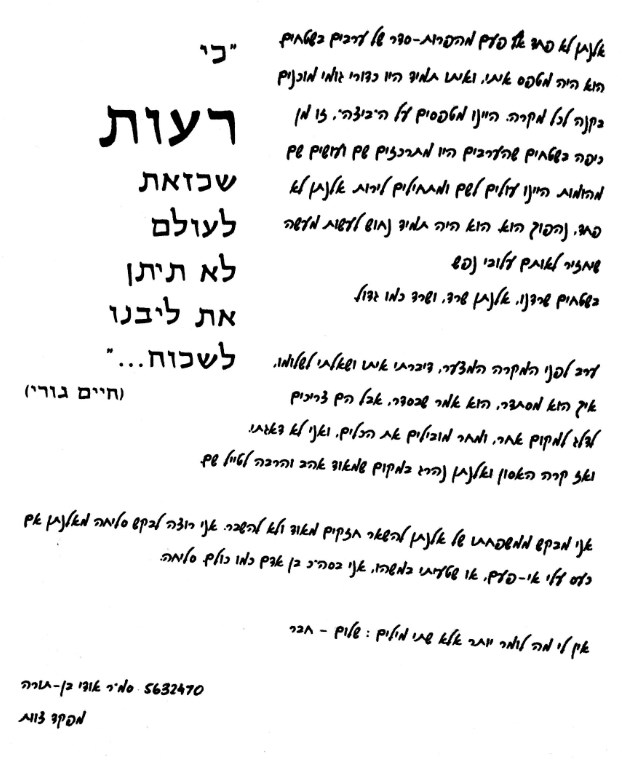 "כי
רעות
שכזאת
לעולם
לא תיתן
את ליבנו
לשכוח..."
(חיים גורי)
אלנתן לא פחד אף פעם מהפרות-סדר של ערבים בשטחים.
הוא היה מטפס איתי, ואיתו תמיד היו כדורי גומי מוכנים
בקנה לכל מקרה. היינו מטפסים על ה"ביצה", זו מן
כיפה בשטחים שהערבים היו מתרכזים שם ועושים שם
מהומות. היינו עולים לשם ומתחילים לירות. אלנתן לא
פחד, נהפוך הוא. הוא היה תמיד נחוש לעשות מעשה
שמחזיר לאותם עלובי נפש.
בשטחים שרדנו, אלנתן שרד, ושרד כמו גדול.
ערב לפני המקרה המצער, דיברתי איתו ושאלתי לשלומו,
איך הוא מסתדר, הוא אמר שבסדר, אבל הם צריכים
לדלג למקום אחר, ומחר מובילים את הכלים, ואני לא דאגתי.
ואז קרה האסון ואלנתן נהרג במקום שמאוד אהב והרבה לטייל שם.
אני מבקש ממשפחתו של אלנתן להשאר חזקים מאוד ולא להשבר. אני רוצה לבקש סליחה מאלנתן אם
כעס עלי אי-פעם, או שטעיתי במשהו, אני בסה"כ בן אדם כמו כולם. סליחה.
אין לי מה לומר יותר אלא שתי מילים: שלום - חבר
5632470 סמ"ר אודי בן-תורה
מפקד צוות